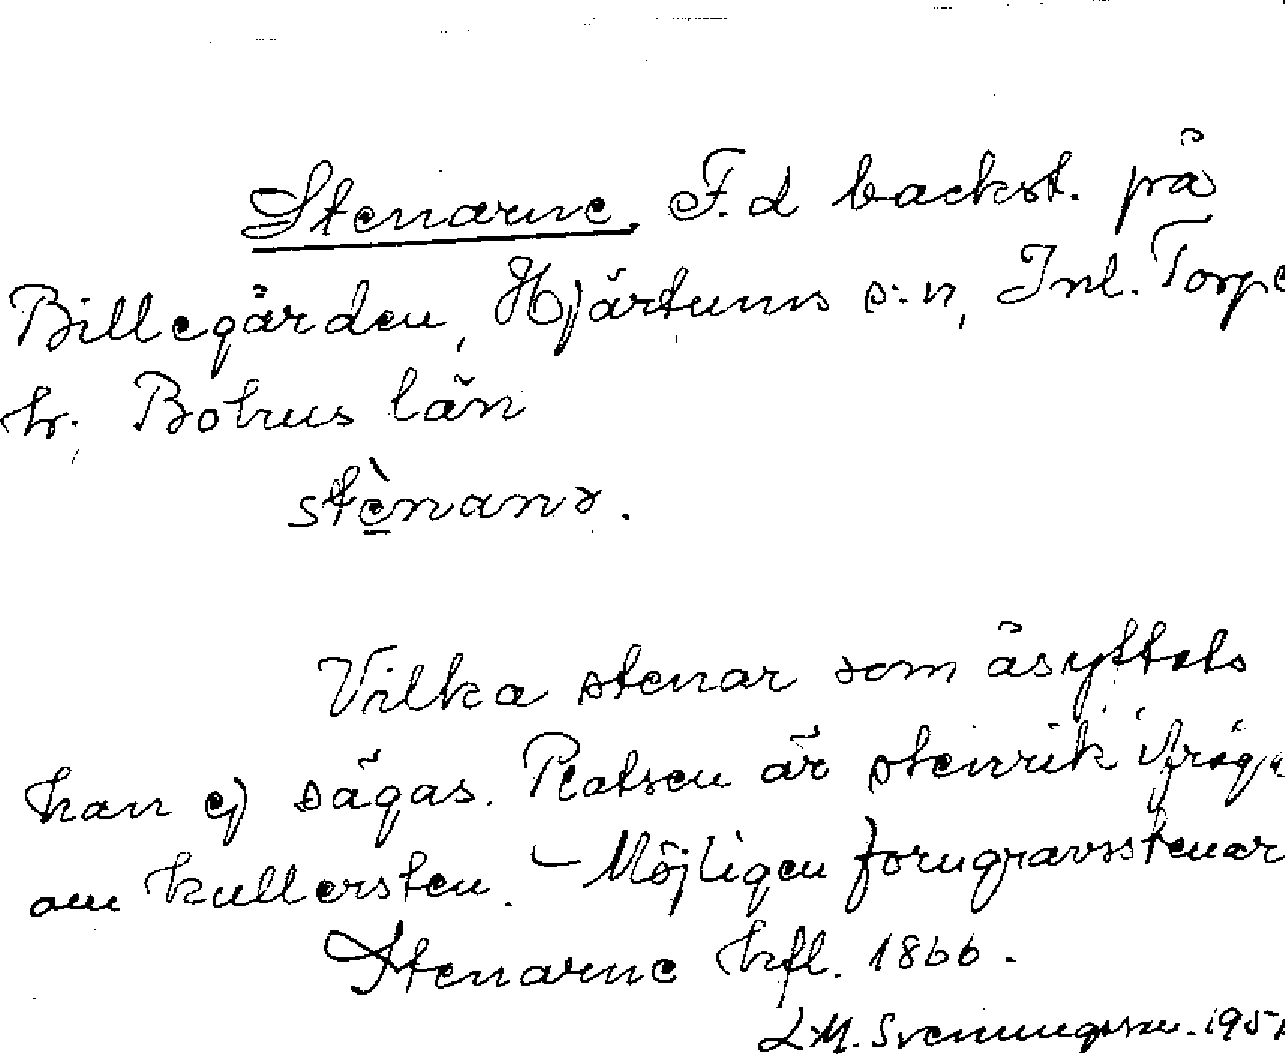 Stenarne. F.d backst. på
Billegården, Hjärtums s:n, Inl. Torpe
hr. Bohus län
stènanɤ.
Vilka stenar som åsyftats
kan ej sägas. Platsen är stenrik ifråga
om kullersten. – Möjligen forngravsstenar
Stenarne hfl. 1866.
L.M. Svenungsson.